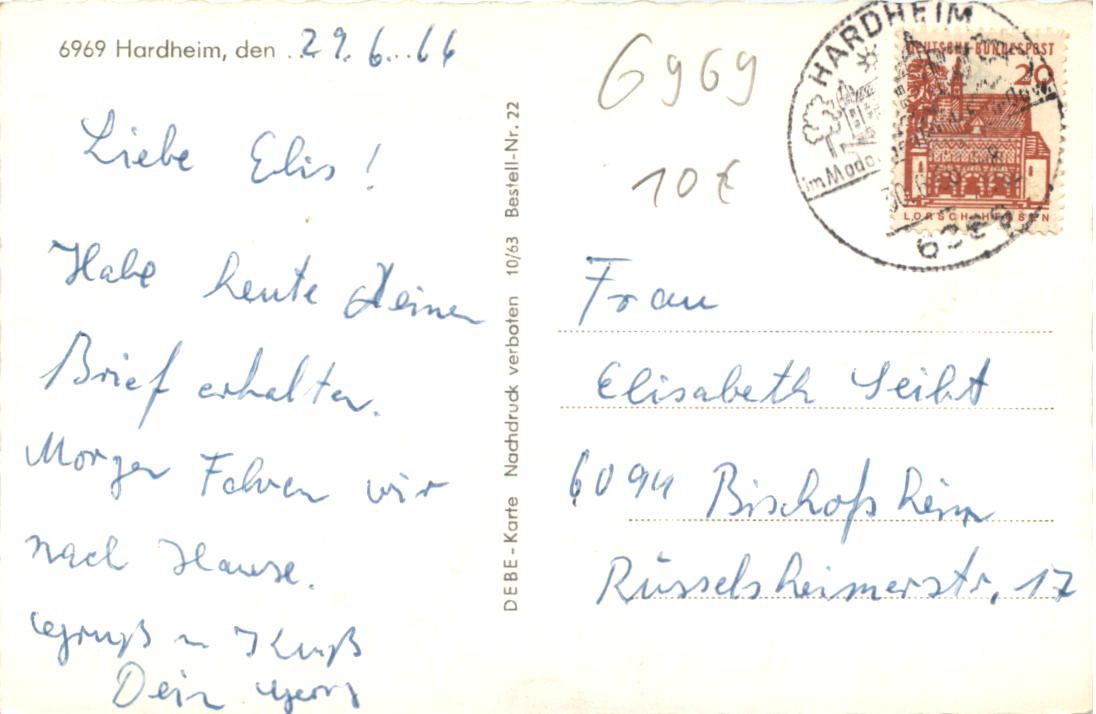 6969 Hardheim, den 29.6.66
Liebe Elis!
Habe heute Deinen
Brief erhalten.
Morgen Fahren wir
nach Hause.
Gruß u Kuß
Dein Georg
DEBE-Karte Nachdruck verboten 10/63 Bestell-Nr. 22
6969
10€
HARDHEIM
im Mado
6969
DEUTSCHE BUNDESPOST
20
LORSCH · HESSEN
Frau
Elisabeth Seibt
6094 Bischofsheim
Rüsselsheimerstr. 17